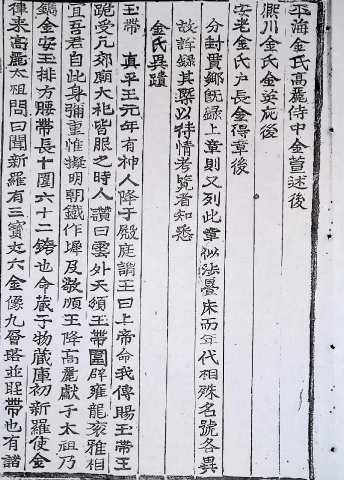 江海金氏高麗侍中金萱述後
熙川金氏金英庇後
安老金氏戶長金得章後
分封貫鄉既錄上章則又列此章似法疊床而年代相殊名號各異
故詳錄其槩以待情考覽者知悉
金氏異蹟
玉帶 真平王元年有神人降于殿庭謂王曰上帝命我傳賜玉帶王
跪受凡郊廟大祀皆服之時人讚曰雲外天頒玉帶圍辟雍龍袞雅相
宜吾君自此身彌重惟擬明朝鐵作墀及敬順王降高麗獻于太祖乃
鐫金安玉排方腰帶長十圍六十二銙也命藏于物藏庫初新羅使金
律來高麗太祖問曰聞新羅有三寶丈六金像九層塔並聖帶也有諸